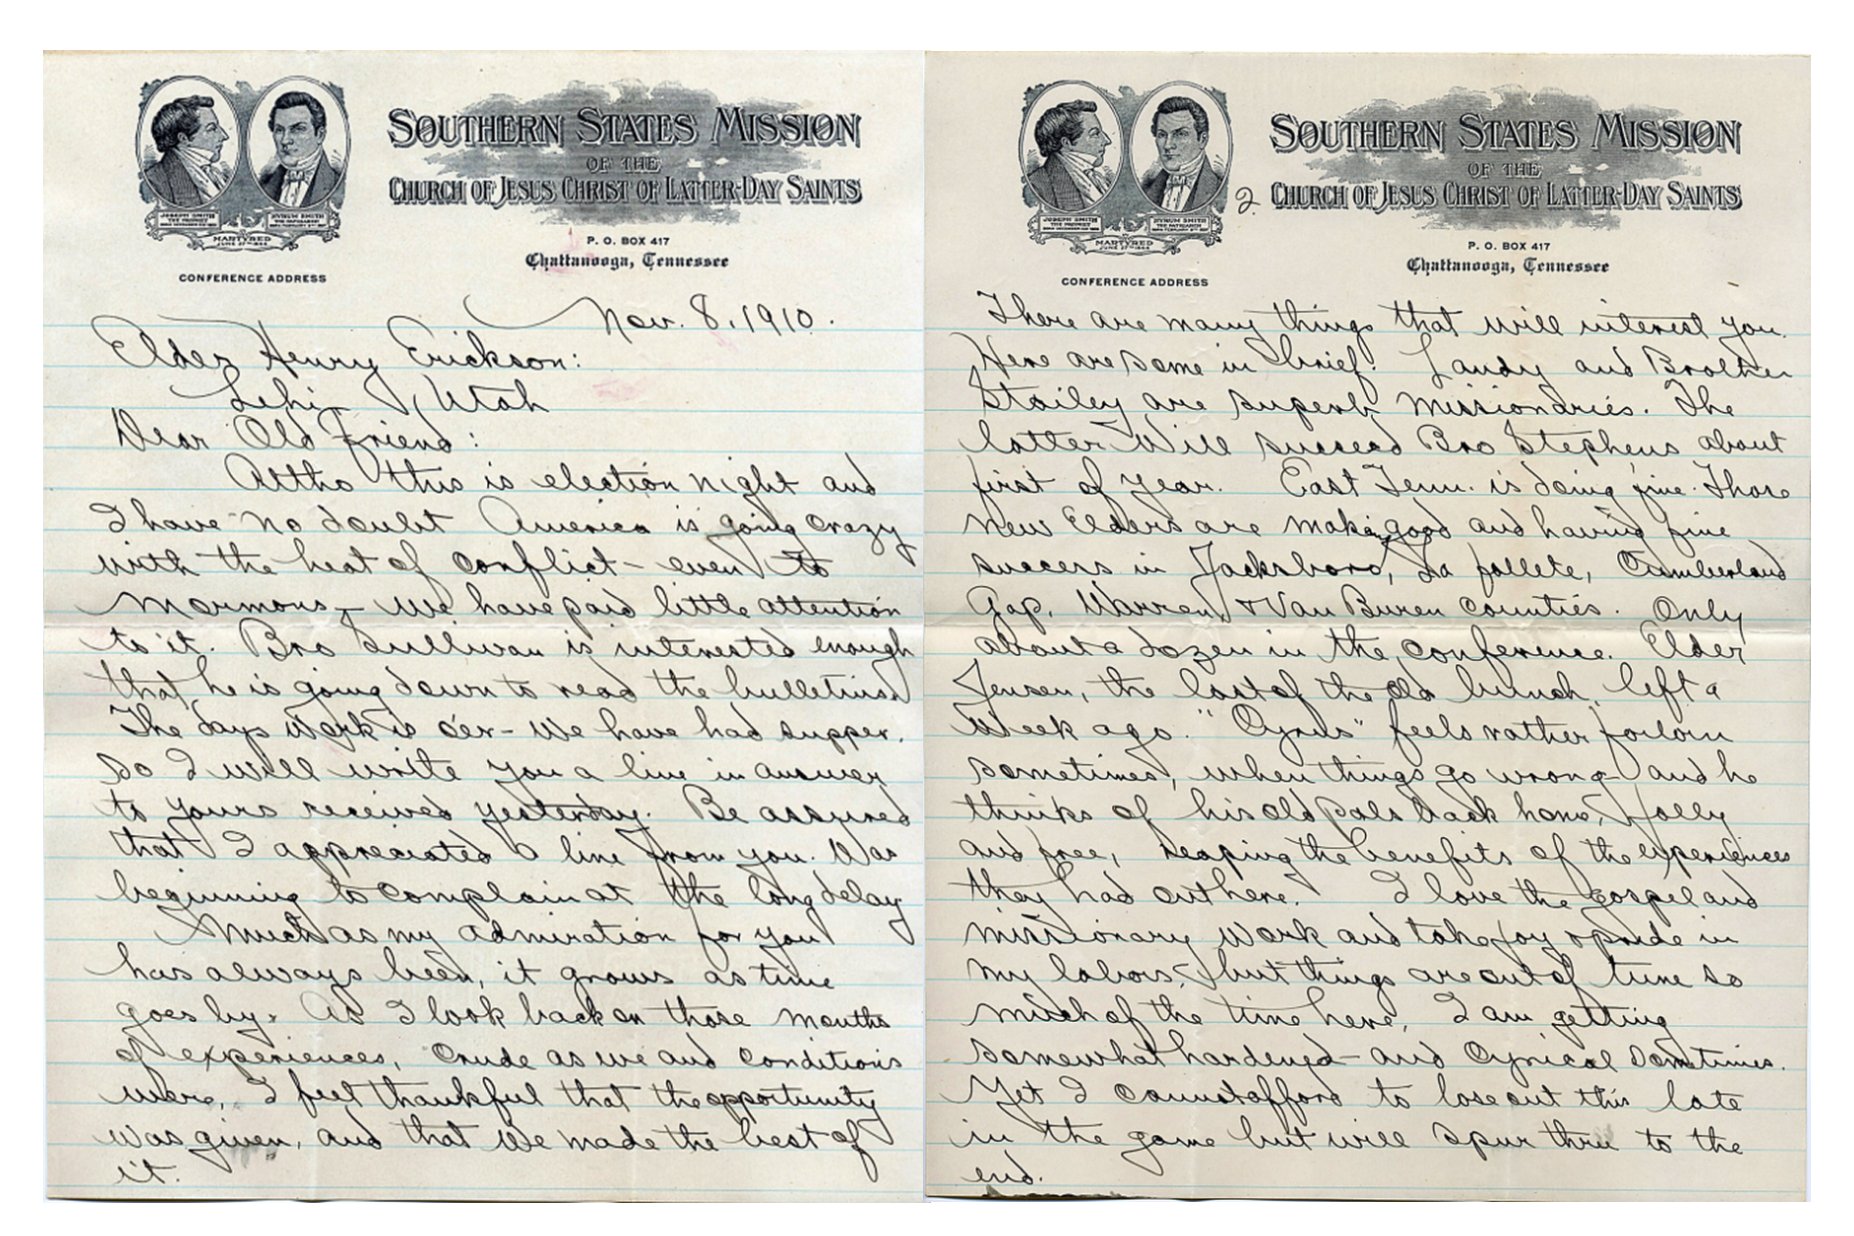 SOUTHERN STATES MISSION
OF THE
CHURCH OF JESUS CHRIST OF LATTER-DAY SAINTS
JOSEPH SMITH
THE PROPHET
HYRUM SMITH
THE PATRIARCH
MARTYRED
JUNE 27TH 1844
P. O. BOX 417
Chattanooga, Tennessee
CONFERENCE ADDRESS
Nov. 8, 1910.
Elder Henry Erickson:
Lehi, Utah
Dear Old Friend:
Altho this is election night and
I have no doubt America is going crazy
with the heat of conflict - even to
Mormons - we have paid little attention
to it. Bro Sullivan is interested enough
that he is going down to read the bulletins.
The days work is o'er - We have had supper.
so I will write you a line in answer
to yours received yesterday. Be assured
that I appreciated a line from you. Was
beginning to complain at the long delay
Much as my admiration for you
has always been, it grows as time
goes by. As I look back on those months
of experiences, crude as we and conditions
were, I feel thankful that the opportunity
was given, and that we made the best of
it.
SOUTHERN STATES MISSION
OF THE
2. CHURCH OF JESUS CHRIST OF LATTER-DAY SAINTS
JOSEPH SMITH
THE PROPHET
HYRUM SMITH
THE PATRIARCH
MARTYRED
JUNE 27TH 1844
P. O. BOX 417
Chattanooga, Tennessee
CONFERENCE ADDRESS
There are many things that will interest you.
Here are some in brief: Landy and Brother
Stailey are superb missionaries. The
latter will succeed Bro Stephens about
first of year. East Tenn. is doing fine. Those
new Elders are making good and having fine
success in Jacksboro, La follete, Cumberland
Gap, Warren & Van Buren counties. Only
about a dozen in the conference. Elder
Jensen, the last of the old bunch, left a
week ago. "Cyrus" feels rather forlorn
sometimes, when things go wrong and he
thinks of his old pals back home, Jolly
and free, reaping the benefits of the experiences
they had out here. I love the gospel and
missionary work and take joy & pride in
my labors, but things are out of tune so
much of the time here, I am getting
somewhat hardened - and Cynical sometimes.
Yet I cannot afford to lose out this late
in the game but will spur thru to the
end.